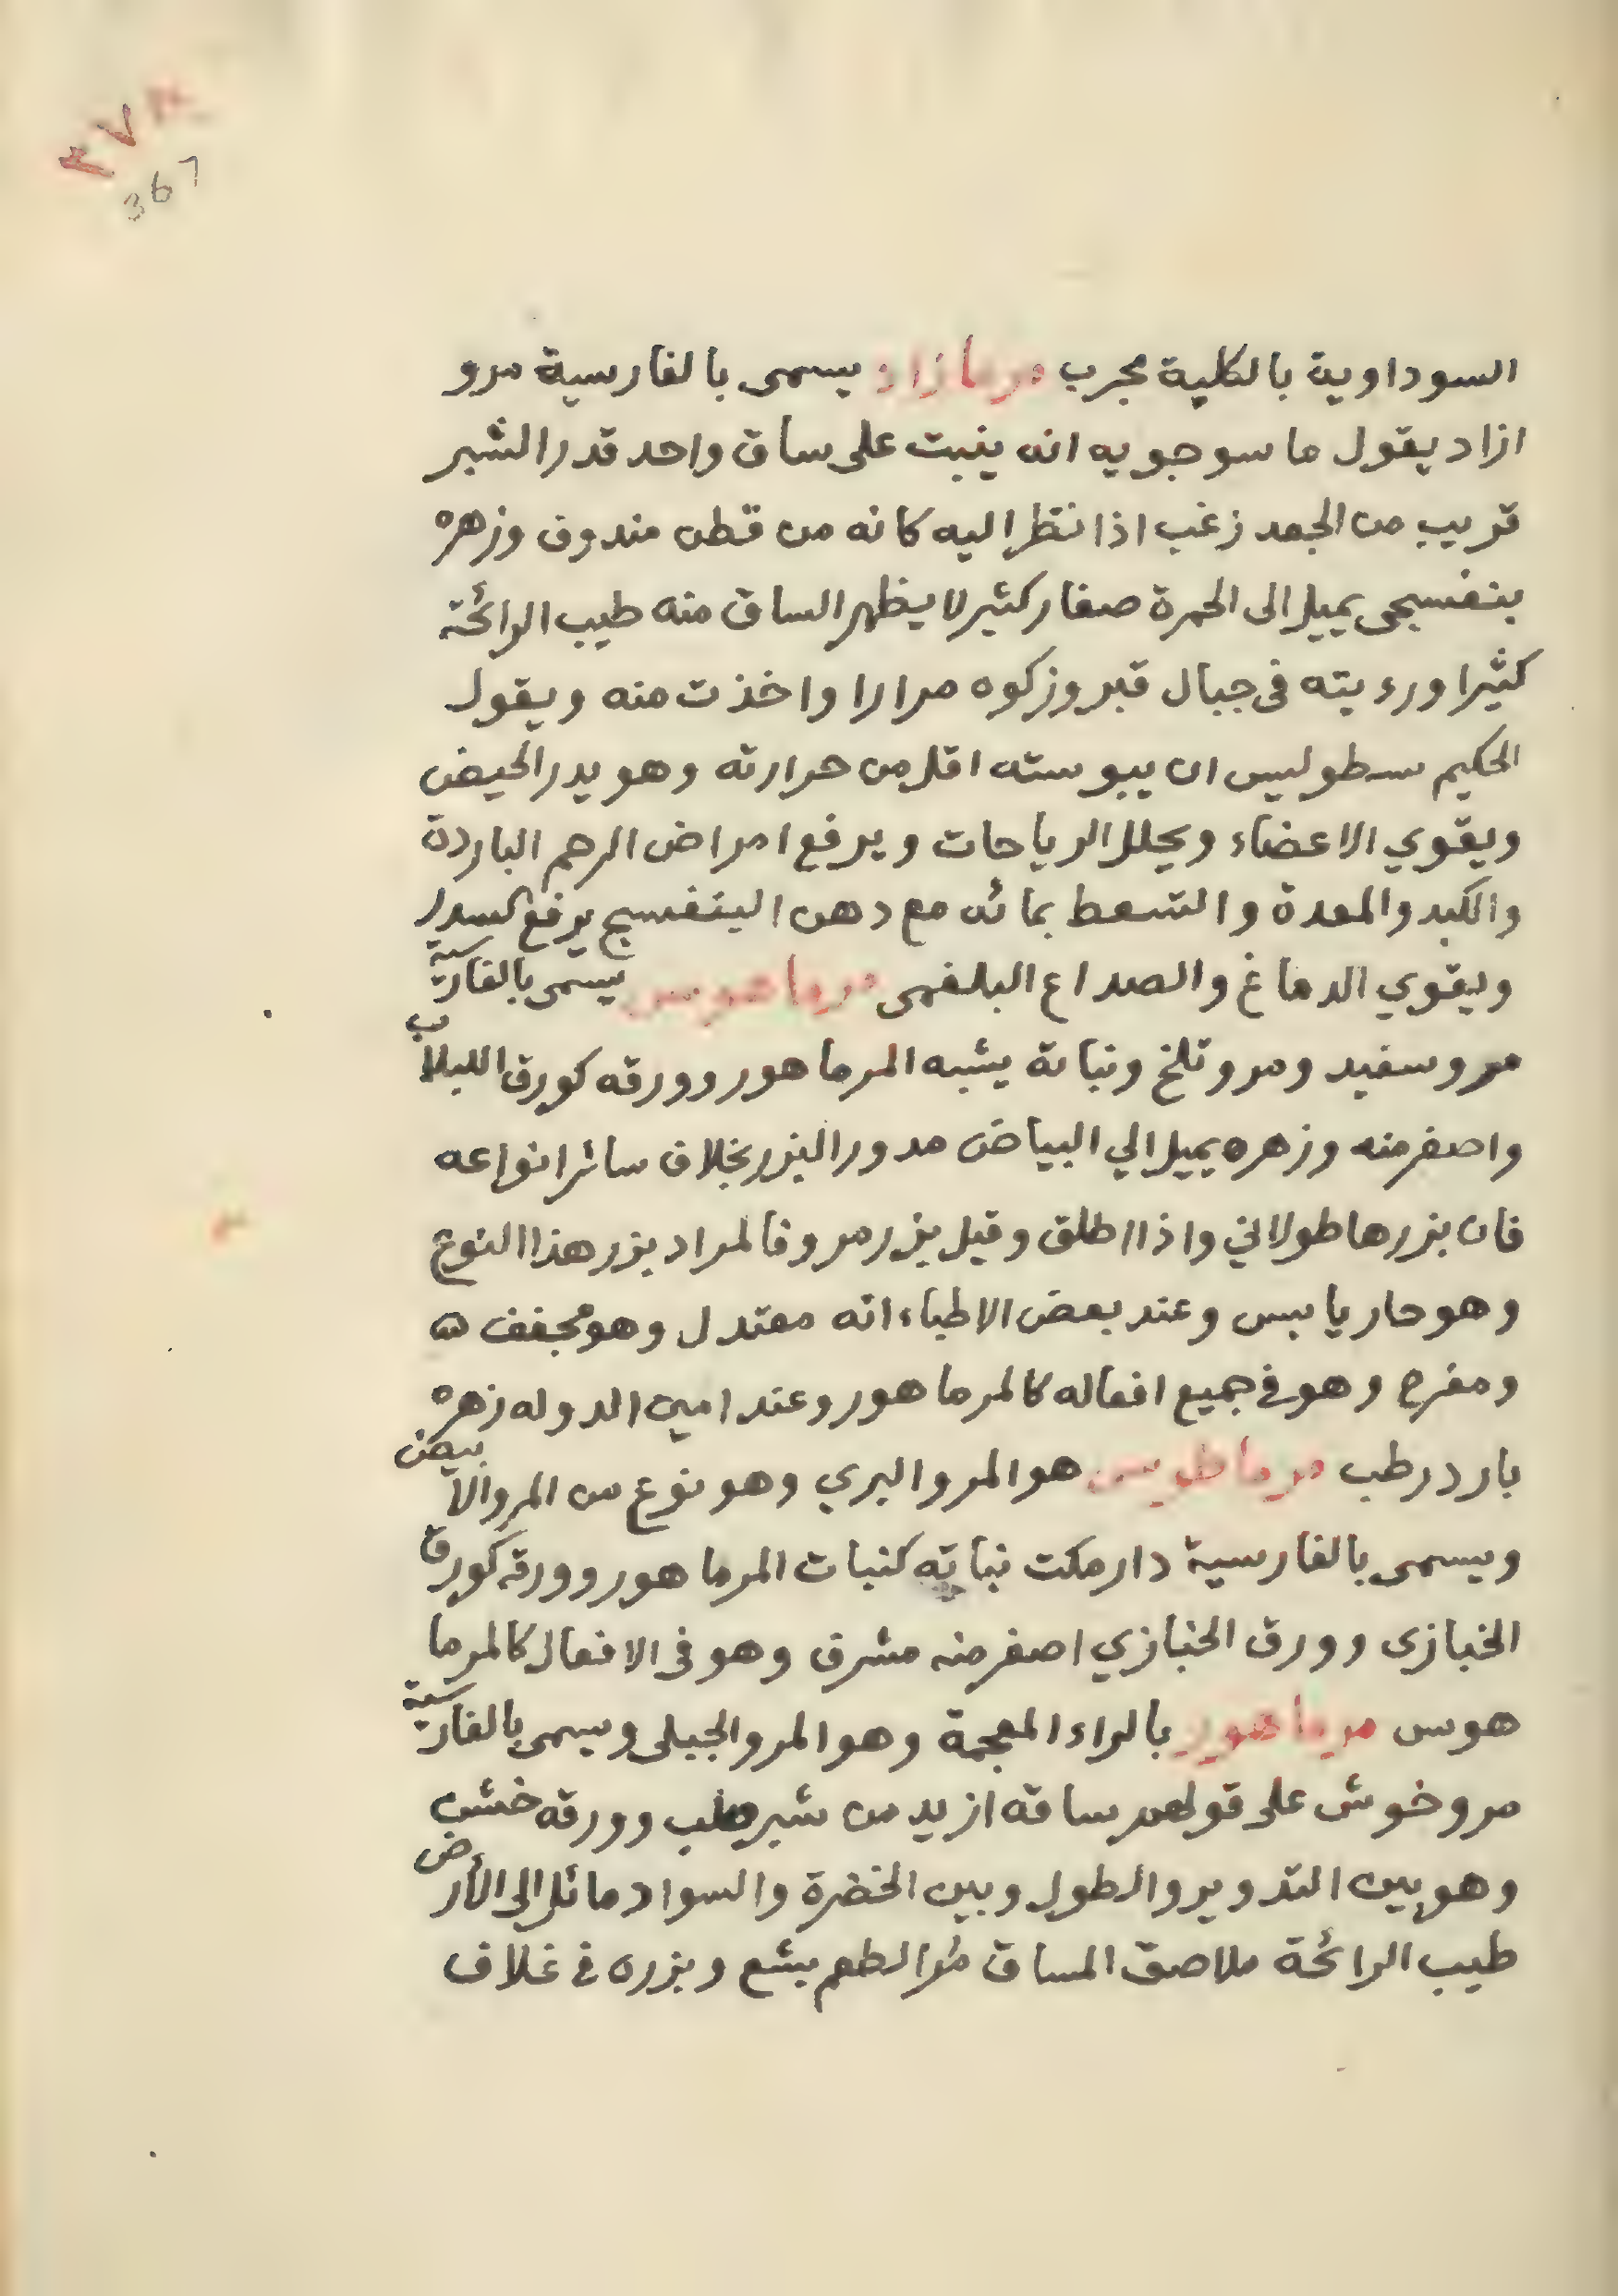 367
السوداوية بالكلية مجرب مرمازاد يسمى بالفارسية مرو
ازاد يقول ماسوجويه انه ينبت على ساق واحد قدر الشبر
قريب من الجعد زغب اذا نظر اليه كانه من قطن مندوف وزهره
بنفسجى يميل الى الحمرة صغار كثير لا يظهر الساق منه طيب الرائحة
كثيرا ورءيته فى جبال قبروزكوه مرارا واخذت منه ويقول
الحكيم سطوليس ان يبوسته اقل من حرارته وهو يدر الحيض
ويقوي الاعضاء ويحلل الرياحات ويرفع امراض الرحم الباردة
والكبد والمعدة والتسعط بمائه مع دهن البنفسج يرفع السدر
ويقوي الدماغ والصداع البلغمى مرماهوس يسمى بالفارسية
مروسفيد ومروتلخ ونباته يشبه المرماهور وورقه كورق اللبلاب
واصغر منه وزهره يميل الي البياض مدور البزر بخلاف سائر انواعه
فان بزرها طولاني واذا اطلق وقيل بزر مرو فالمراد بزر هذا النوع
وهو حار يابس وعند بعض الاطباء انه معتدل وهو مجفف
ومفرح وهو في جميع افعاله كالمرماهور وعند امين الدوله زهره
بارد رطب مرماطوس هو المرو البري وهو نوع من المرو الابيض
ويسمى بالفارسية دارمكت نباته كنبات المرماهور وورقه كورق
الخبازى وورق الخبازي اصغر منه مشرف وهو فى الافعال كالمرما
هوس مرماهور بالراء المعجمة وهو المرو الجبلى ويسمى بالفارسية
مروخوش على قولهم ساقه ازيد من شبر صلب وورقه خشن
وهو بين التدوير والطول وبين الخضرة والسواد مائل الى الأرض
طيب الرائحة ملاصق الساق مر الطعم بشع وبزره في غلاف